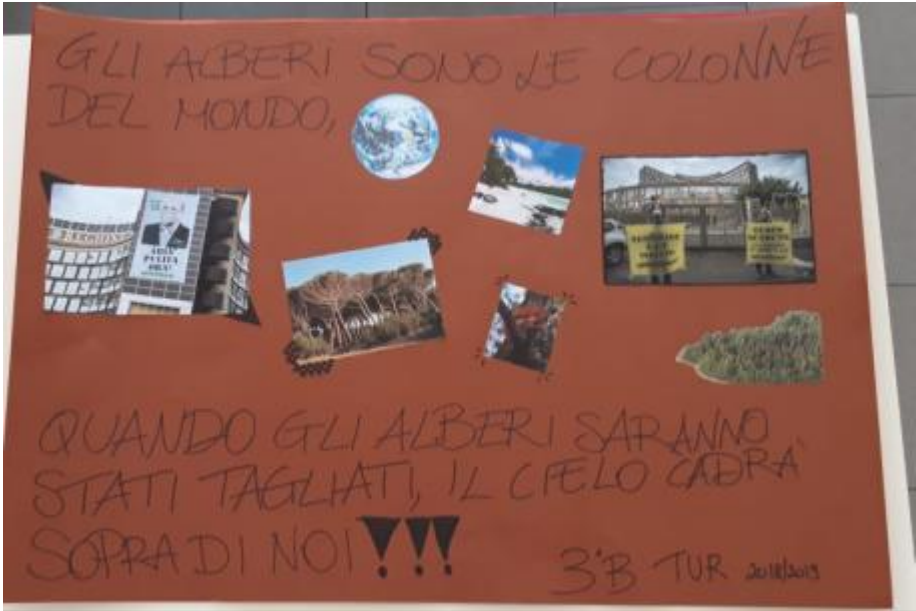 GLI ALBERI SONO LE COLONNE
DEL MONDO,
TERMINI
ARIA
PULITA
ORA!
QUANDO GLI ALBERI SARANNO
STATI TAGLIATI, IL CIELO CADRÀ
SOPRA DI NOI!!!
3ªB TUR 2018/2019